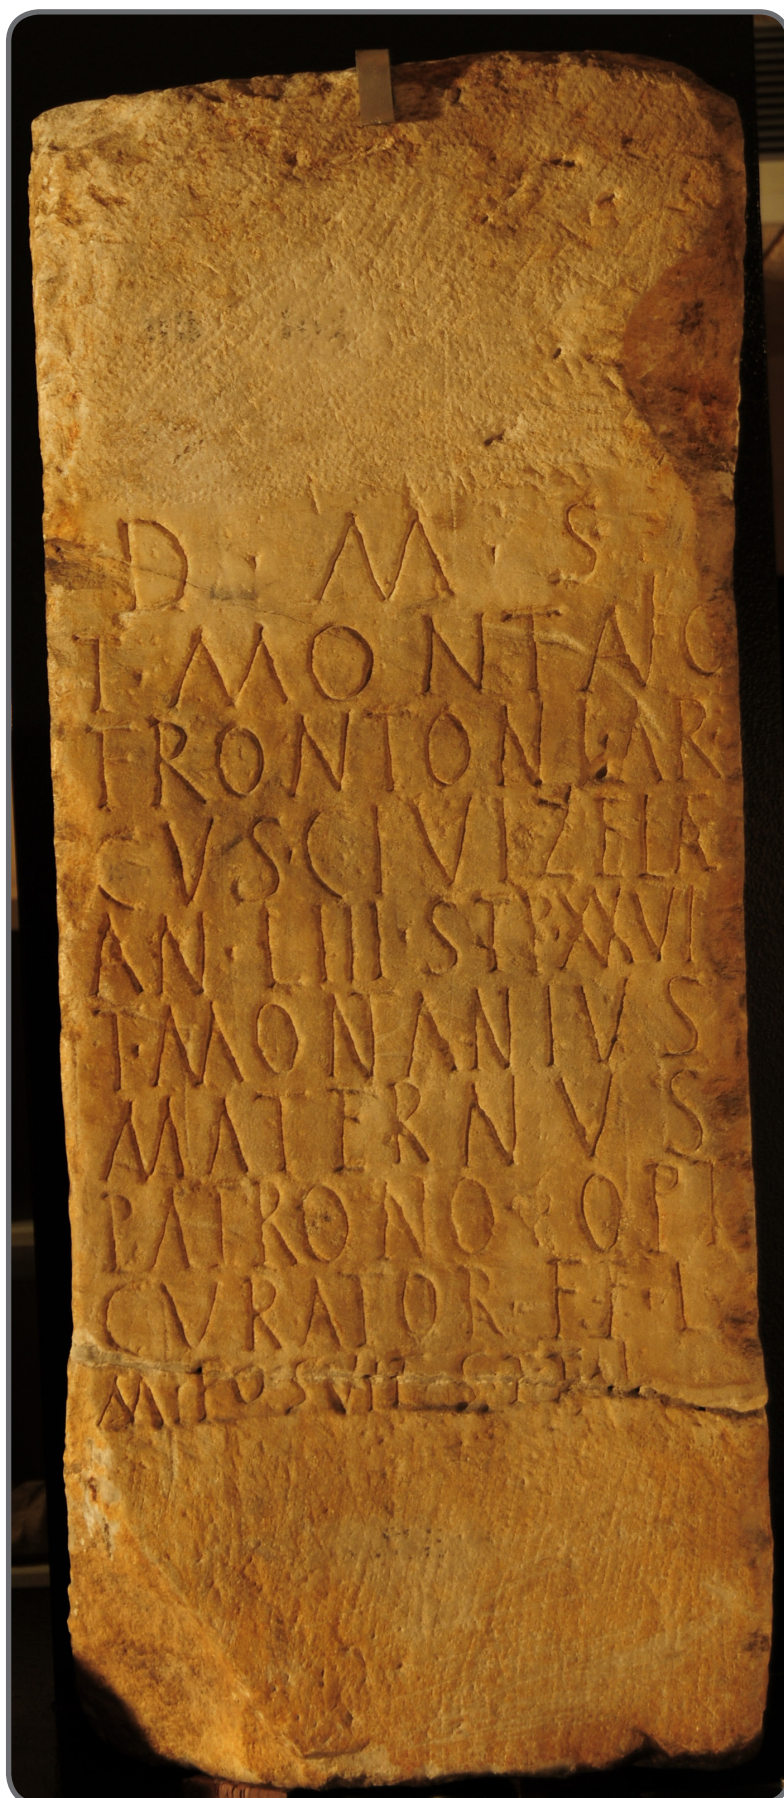 D · M · S
T · MONTANIO
FRONTONI · LAR
CVS · CIVI ZELA
AN · LIII · STP · XXVI
T · MONTANIVS
MATERNVS
PATRONO · OPT
CVRATOR · F · F · L